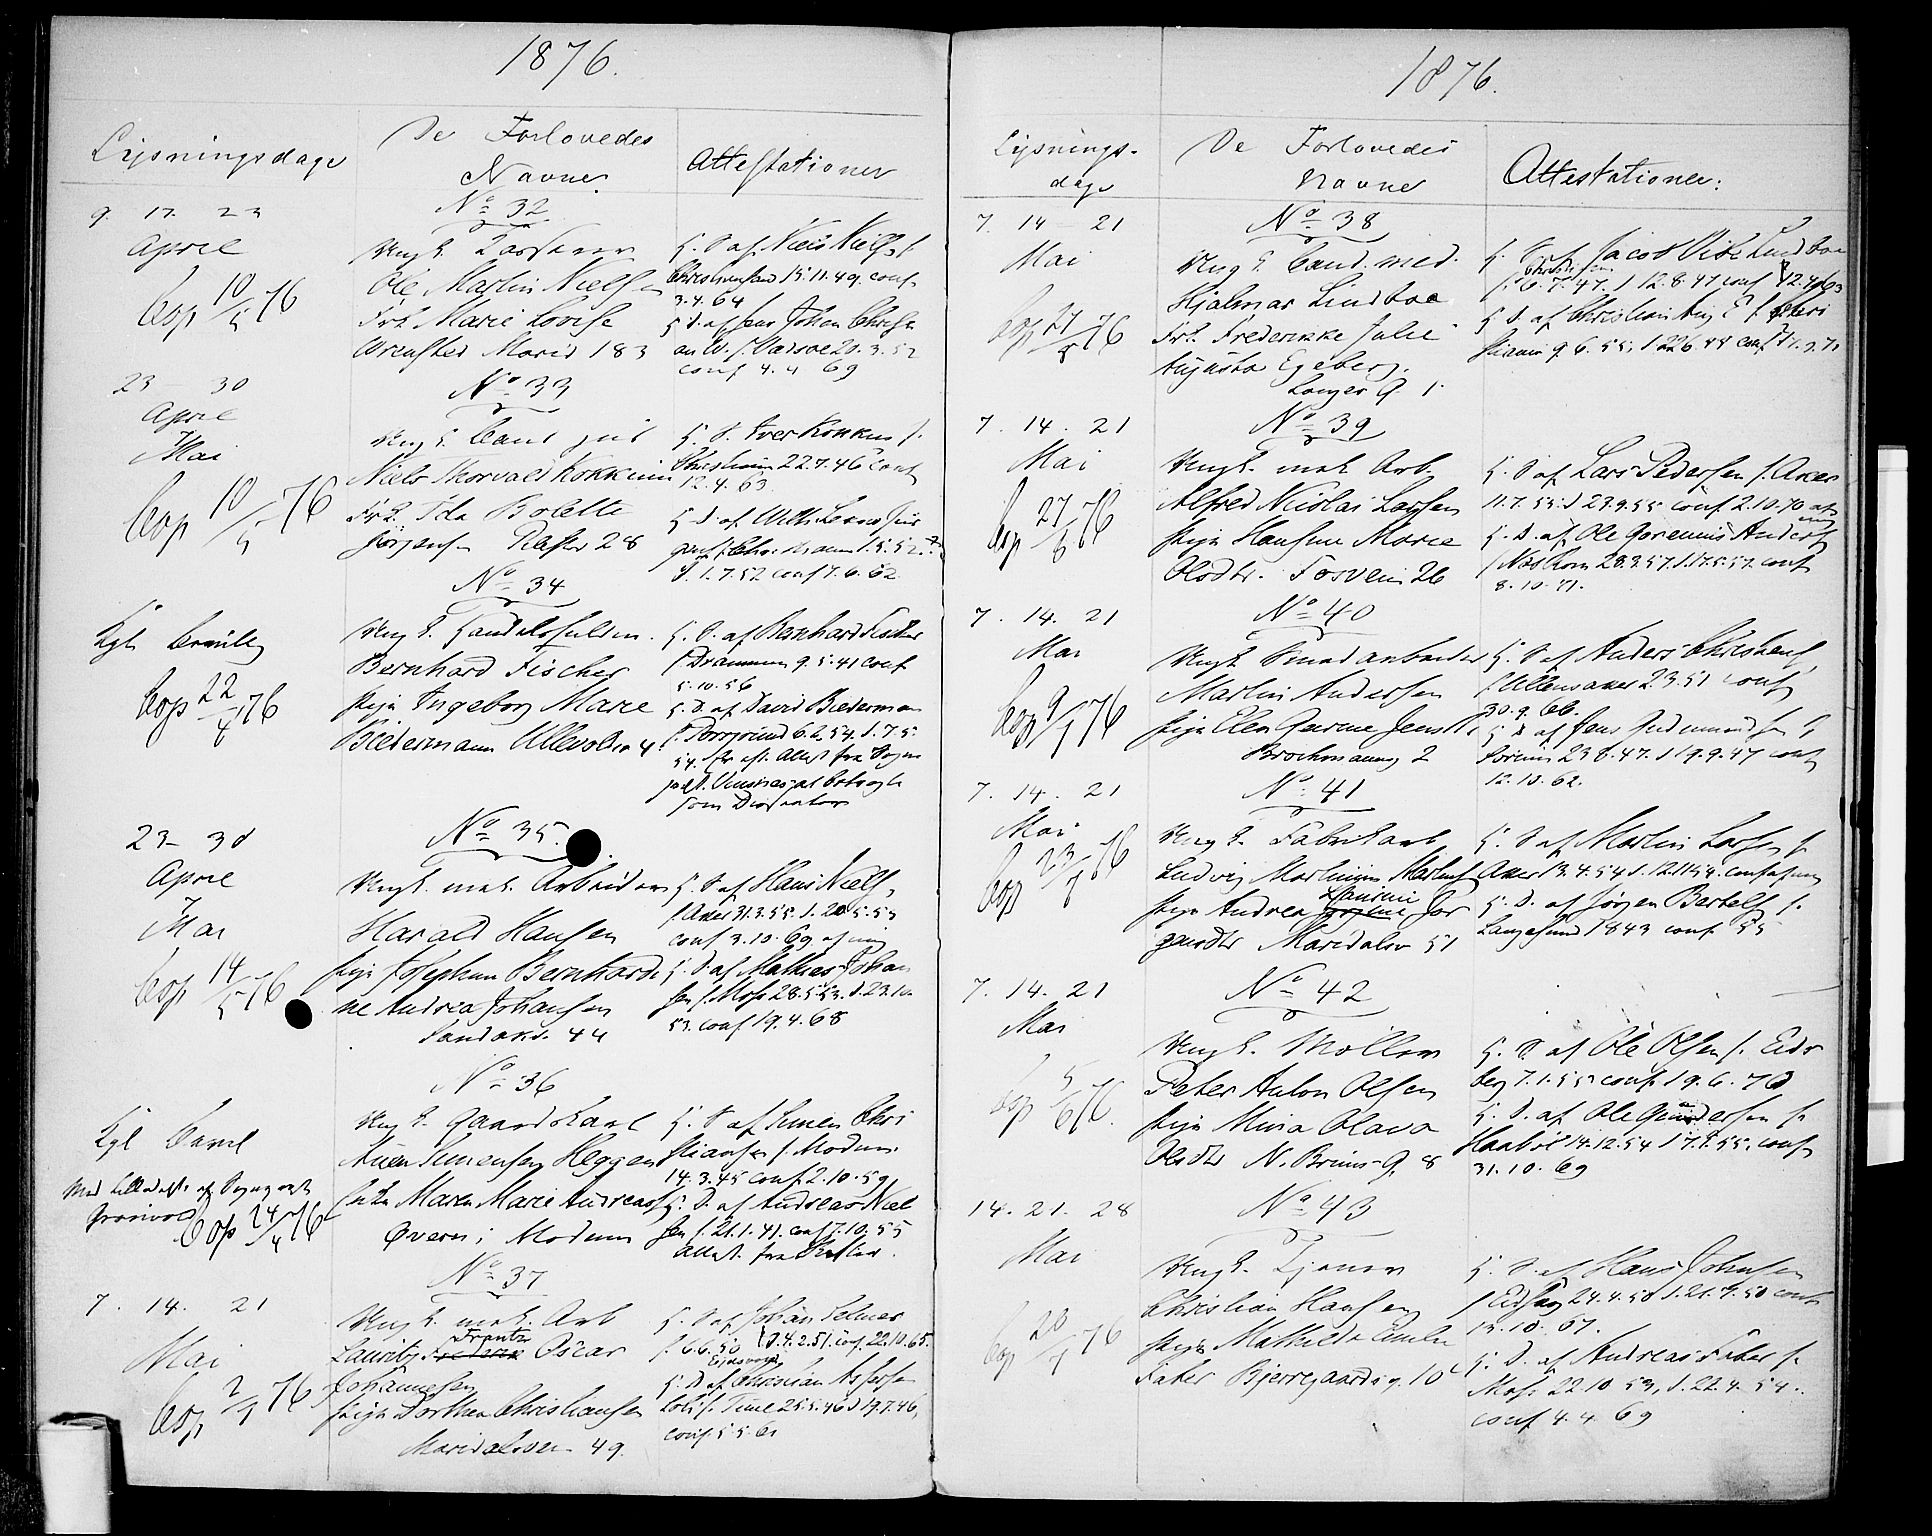 1876.
Lysningsdage
De Forlovedes
Navne.
Attestationer
9. 17. 23
April
Cop 10/5 76
No 32.
Ungk.
Ole Martin Nielsen
Frk. Marie Lovise
Wrensted Marid 183
H. S. af Niels Niels f.
Christiansand 15.11.49. conf
3.4.64
H D. af Jens Johan Christi
an W. f. Vadsøe 20.3.52
conf 4.4 69
23 - 30
April
Mai
Cop 10/5 76
No 33
Ungk. Cand jur
Niels Thorvald Kokkum
Frk. Ida Bolette
Jørgensen 28
H. S. Iver Kokkum f.
22.7.46 conf
12.4.63
H D. af
1.5.52
d. 1.7.52 conf 7.6.62
Kgl. Bevillg
Cop 22/4 76
No 34
Ungk. Handelsfuldm.
Bernhard Fischer
Pige Ingeborg Marie
Biedermann Ullevolsv 4
H. S. af Bernhard Fischer
f Drammen 9.5.41 conf
5.10.56
H. D. af David Biederman
f. Porsgrund 6.6.54. d. 7.5.
54. Attest fra Sogne
som Dissenter
23 - 30
April
Mai
Cop 14/5 76
No 35.
Ungk. mat. Arbeider
Harald Hansen
Pige Josephine Bernhardi
ne Andrea Johansen
Sandakv. 44
H. S. af Hans Niels
f Aker 31.3.55. d. 20.5.55
conf 3.10.69 af mig
H. D. af Mathias Johan
sen f. Moss 28.5.53. d. 23.10.
53. conf 19.4.68
Kgl
Cop 24/4 76
No 36
Ungk. Gaardskarl
Simensen Heggen
Enke Maren Marie Andreasd
Øveren i Modum
H. S. af Simen Chri
stiansen f. Modum
14.3.45 conf 2.10.59
H. D. af Andreas Niel
sen f. 21.1.41. conf 7.10.55
Attest. fra
7. 14. 21
Mai
Cop 2/7 76
No 37
Ungk. mat. Arb
Frantz
Lauritz Frederik Oscar
Johannesen
Pige Dorthea Christiansen
Maridalsvn 49.
H. S. af Johan Selmer
f. 6.6.50 d. 4.2.51. conf. 22.10.65.
Eidsvold
H. D. af Christian
25.5.46 d 19.7.46,
conf. 5.5.61
1876.
Lysnings-
dage
De Forlovedes
Navne
Attestationer:
7. 14 - 21
Mai
Cop 27/5 76
No 38
Ungk. Cand. med.
Hjalmar Lindboe
Frk. Frederikke Julie
Augusta Egeberg.
H. S. af Jacob Lindboe
f. 6.7.47. d 12.8.47 conf 12.4.63
H D. af Christian Aug E. f. Chri
stiania 9.6.55.
7. 14. 21
Mai
Cop 27/6 76
No 39
Ungk. mat. Arb.
Alfred Nicolai Larsen
Pige Hansine Marie
Olsdtr. Fosvein 26
H. S. af Lars Pedersen f. Aker
11.7.55. d 23.9.55 conf 2.10.70 af
mig
H. D. af Ole Anders
28.3.57. d. 17.5.57. conf
8.10.71.
7. 14. 21
Mai
Cop 9/7 76
No 40
Ungk Smedarbeider
Martin Andersen
Pige Elen Gurine Jensdtr
Brochmanng 2
H. S. af Anders Christens
f Ullensaker 2.3.51 conf
30.9.66.
H D af Jens Gudmunds f
Sørum 23 8.47. d 19.9.47 conf
12.10.62.
7. 14. 21
Mai
Cop 23/7 76
No 41
Ungk. Fabrikarb
Ludvig Martinius Martins
Laurine
Pige Andrea Jør
gensdtr Maridalsv 51
H. S af Martin Larsen f.
Aker 13.4.54 d. 12.11.54. conf af mig
H. D. af Jørgen Bertels f.
Langesund 1843 conf. 55
7. 14. 21
Mai
Cop 5/6 76.
No 42
Ungk. Møller
Peter Anton Olsen
Pige Mina Olava
Olsdtr N. Bruns G. 8
H. S af Ole Olsen f. Eids
berg 7.1.55 conf. 19.6.70
H. D. af Ole Gundersen f.
Haabøl 14.12.54 conf
31.10.69
14. 21. 28
Mai
Cop 20/7 76
No 43
Ungk. Tjener
Christian Hansen
Pige Mathilde Emilie
Faber Bjerregaardsg. 10
H. S. af Hans Johnsen
f Eidsvog 24.4.50 d. 21.9.50 conf
15.10.67.
H. D. af Andreas Faber f.
Moss 22.10 53, d. 22.4.54.
conf 4.4.69